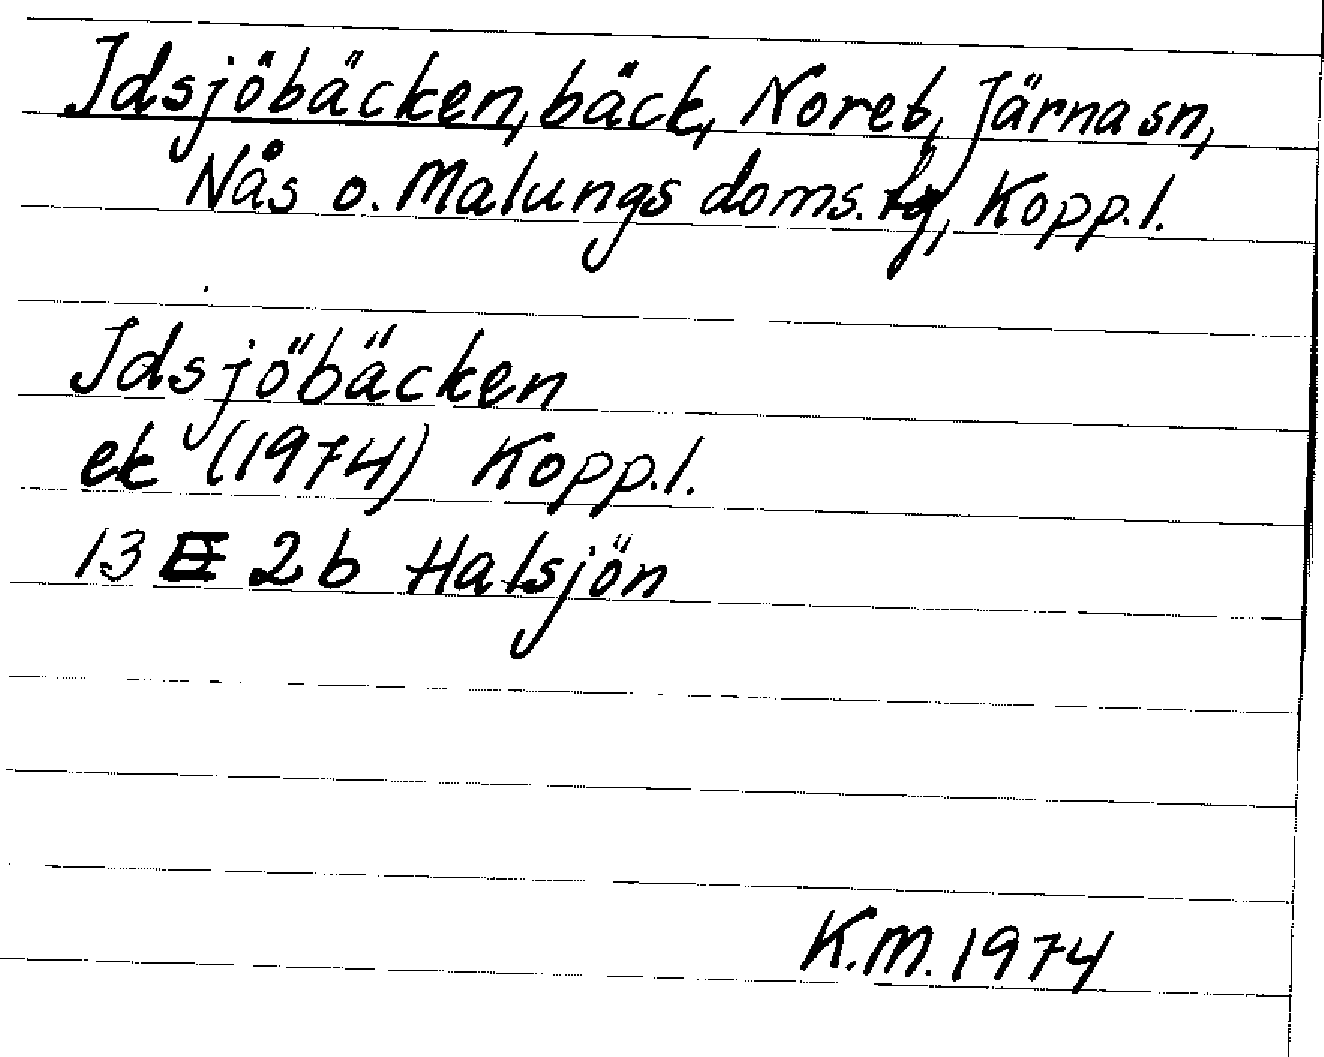 Idsjöbäcken, bäck, Noret, Järna sn,
Nås o. Malungs doms.lg, Kopp.l.
Idsjöbäcken
ek (1974) Kopp.l.
13 E 2b Halsjön
K.M. 1974